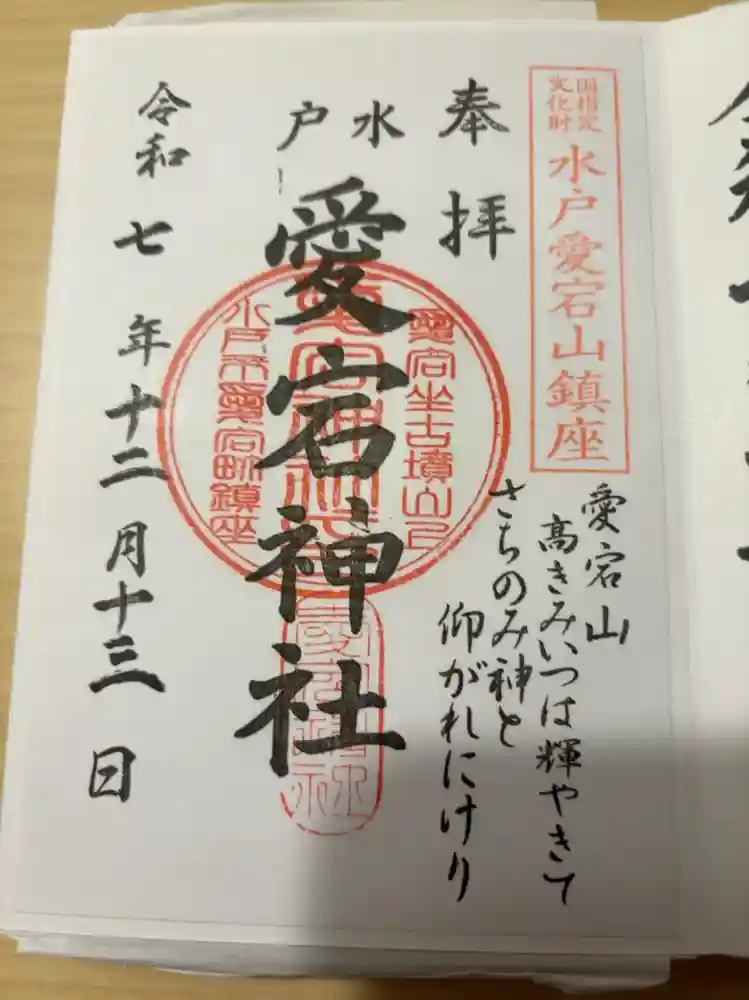 国指定
文化財
水戸愛宕山鎮座
奉拝
愛宕山
高きみいつは輝やきて
さちのみ神と
仰がれにけり
水戸
愛宕神社
愛宕坐古墳山上
愛宕神社
水戸市愛宕町鎮座
令和七年十二月十三日